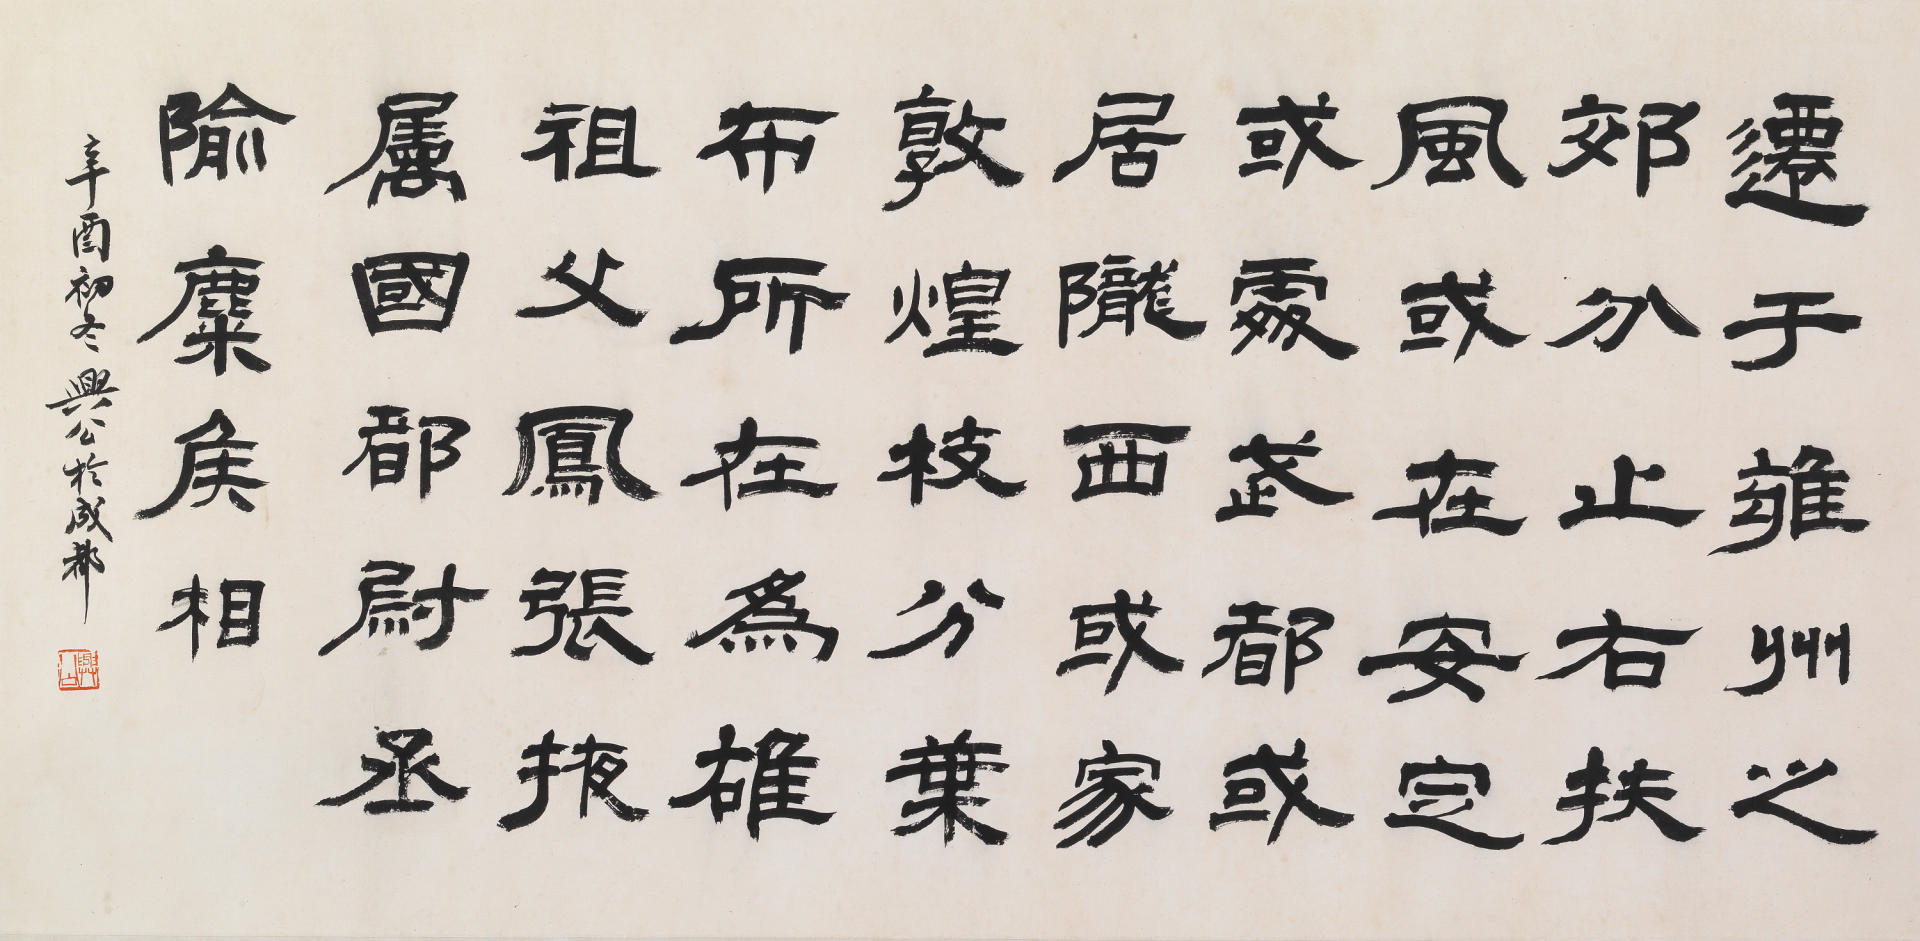 遷于雍州之
郊分止右扶
風或在安定
或處武都或
居隴西或家
敦煌枝分葉
布所在為雄
祖父鳳張掖
屬國都尉丞
隃麋侯相
辛酉初冬興公於成都